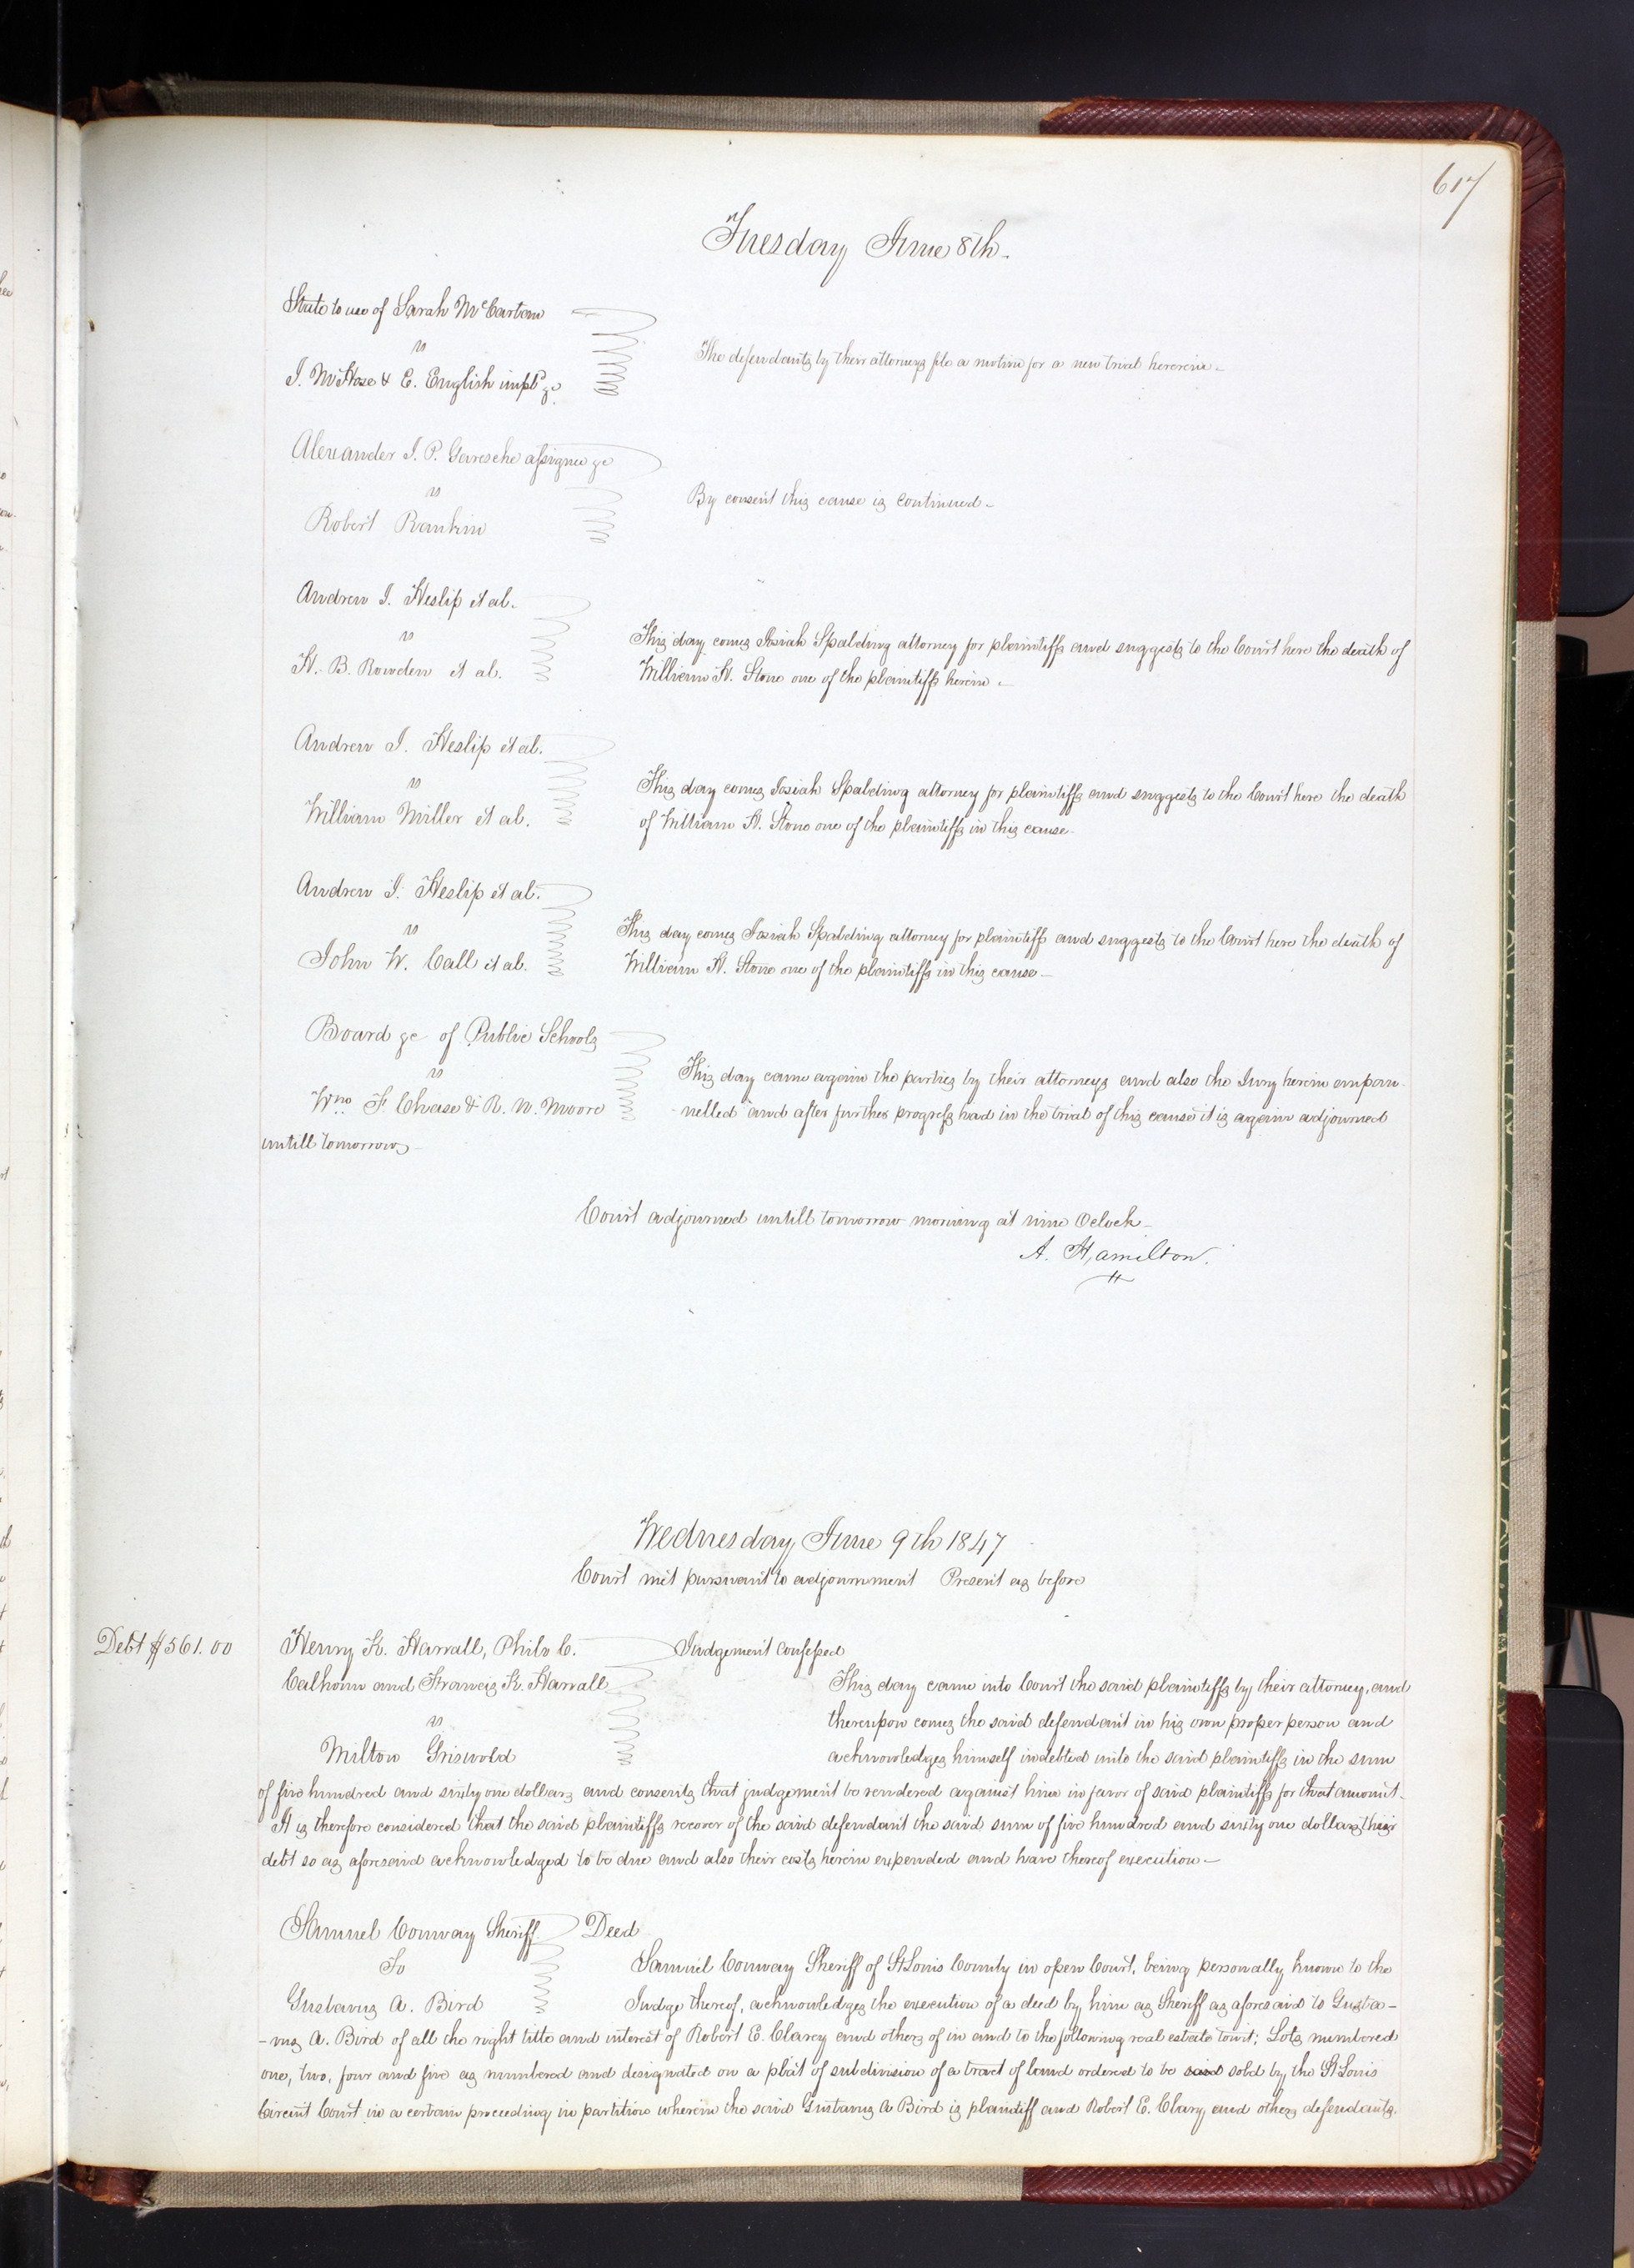 617
Tuesday June 8th.
State to use of Sarah McCartan
vs
J. McHose & E. English impld &c
The defendants by their attorneys file a motion for a new trial hererein.
Alexander J. P. Garesche assignee &c
vs
Robert Rankin
By consent this cause is continued.
Andrew J. Heslip et al.
vs
H. B. Rowden et al.
This day comes Josiah Spalding attorney for plaintiffs and suggests to the Court here the death of
William H. Stone one of the plaintiffs herein.
Andrew J. Heslip et al.
vs
William Miller et al.
This day comes Josiah Spalding attorney for plaintiffs and suggests to the Court here the death
of William H. Stone one of the plaintiffs in this cause.
Andrew J. Heslip et al.
vs
John W. Call et al.
This day comes Josiah Spalding attorney for plaintiffs and suggests to the Court here the death of
William H. Stone one of the plaintiffs in this cause.
Board &c of Public Schools
vs
Wm. F. Chase & R. N. Moore
This day came again the parties by their attorneys and also the Jury herein empan-
-nelled and after further progress had in the trial of this cause it is again adjourned
untill tomorrow
Court adjourned untill tomorrow morning at nine Oclock
A. Hamilton.
Wednesday June 9th 1847
Court met pursuant to adjournment Present as before
Debt $561.00
Henry K. Harrall, Philo C.
Calhoun and Francis K. Harrall
vs
Milton Griswold
Judgement confessed
This day came into Court the said plaintiffs by their attorney, and
thereupon comes the said defendant in his own proper person and
acknowledges himself indebted unto the said plaintiffs in the sum
of five hundred and sixty one dollars and consents that judgement be rendered against him in favor of said plaintiffs for that amount.
It is therefore considered that the said plaintiffs recover of the said defendant the said sum of five hundred and sixty one dollars their
debt so as aforesaid acknowledged to be due and also their costs herein expended and have thereof execution
Samuel Conway Sheriff
To
Gustavus A. Bird
Deed
Samuel Conway Sheriff of St Louis County in open Court, being personally known to the
Judge thereof, acknowledges the execution of a deed by him as Sheriff as aforesaid to Gusta-
-vus A. Bird of all the right title and interest of Robert E. Clary and others of in and to the following real estate towit; Lots numbered
one, two, four and five as numbered and designated on a plat of subdivision of a tract of land ordered to be said sold by the St Louis
Circuit Court in a certain proceeding in partition wherein the said Gustavus A Bird is plaintiff and Robert E. Clary and others defendants.